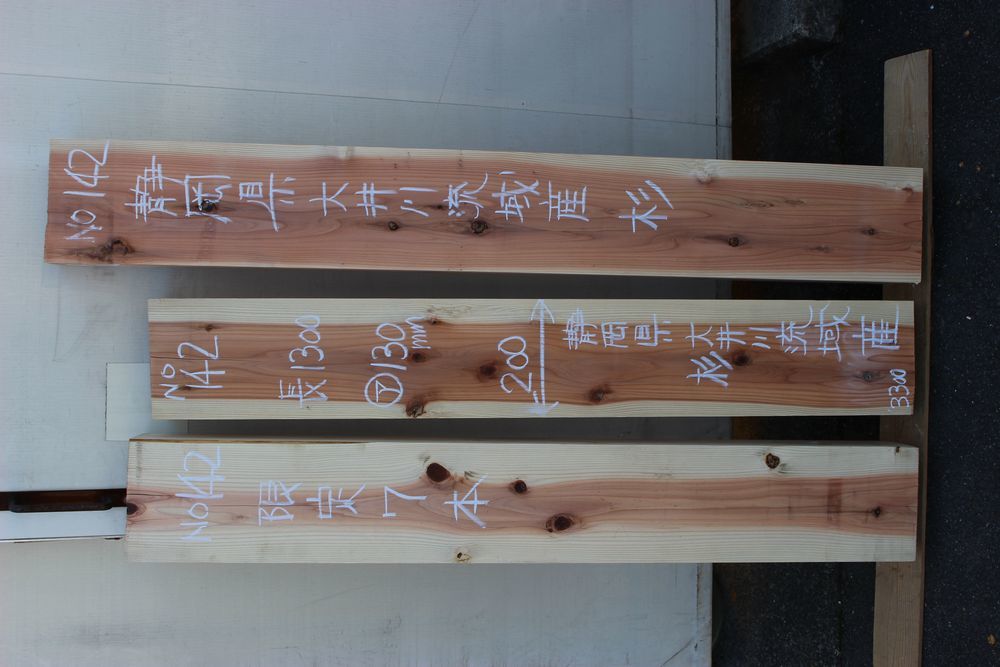 NO142
静岡県大井川流域産 杉
NO
142
長1300
130mm
200
静岡県大井川流域産
杉
3300
NO142
限定7本